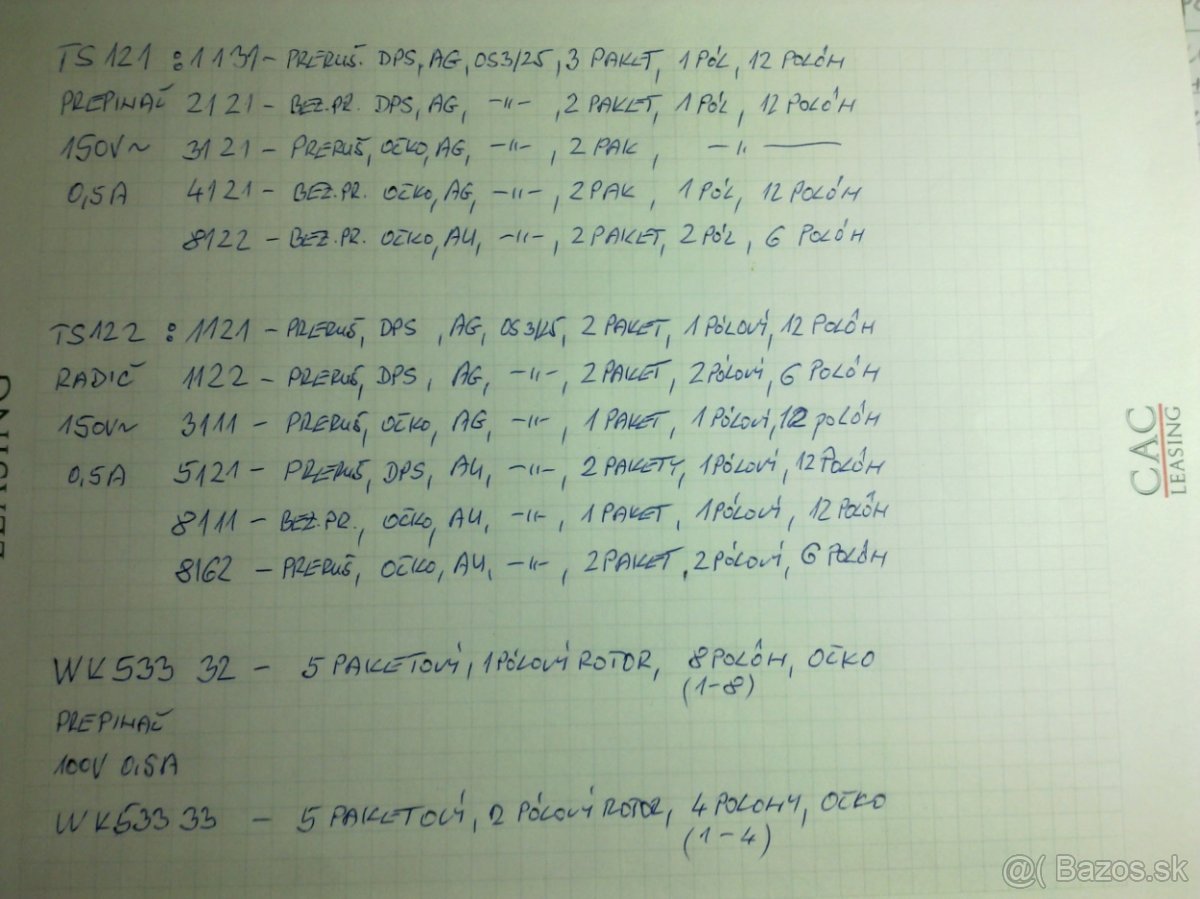 TS121 : 1131 - PRERUŠ. DPS, AG, OS3/25, 3 PAKET, 1 PÓL, 12 POLÔH
PREPINAČ 2121 - BEZ.PR. DPS, AG, -"- , 2 PAKET, 1 PÓL, 12 POLÔH
150V~ 3121 - PRERUŠ, OČKO, AG, -"- , 2 PAK , -"-
0,5A 4121 - BEZ.PR. OČKO, AG, -"- , 2 PAK , 1 PÓL, 12 POLÔH
8122 - BEZ.PR. OČKO, AU, -"- , 2 PAKET, 2 PÓL, 6 POLÔH
TS122 : 1121 - PRERUŠ, DPS , AG, OS3/25, 2 PAKET, 1 PÓLOVÍ, 12 POLÔH
RADIČ 1122 - PRERUŠ, DPS , AG, -"- , 2 PAKET, 2 PÓLOVÍ, 6 POLÔH
150V~ 3111 - PRERUŠ, OČKO, AG, -"- , 1 PAKET, 1 PÓLOVÍ, 12 POLÔH
0,5A 5121 - PRERUŠ, DPS, AU, -"- , 2 PAKETY, 1 PÓLOVÍ, 12 POLÔH
8111 - BEZ.PR., OČKO, AU, -"- , 1 PAKET, 1 PÓLOVÍ, 12 POLÔH
8162 - PRERUŠ, OČKO, AU, -"- , 2 PAKET, 2 PÓLOVÍ, 6 POLÔH
WK533 32 - 5 PAKETOVÍ, 1 PÓLOVÍ ROTOR, 8 POLÔH, OČKO
(1-8)
PREPINAČ
100V 0,5A
WK533 33 - 5 PAKETOVÍ, 2 PÓLOVÍ ROTOR, 4 POLOHY, OČKO
(1-4)
CAC
LEASING
LEASING
@( Bazos.sk